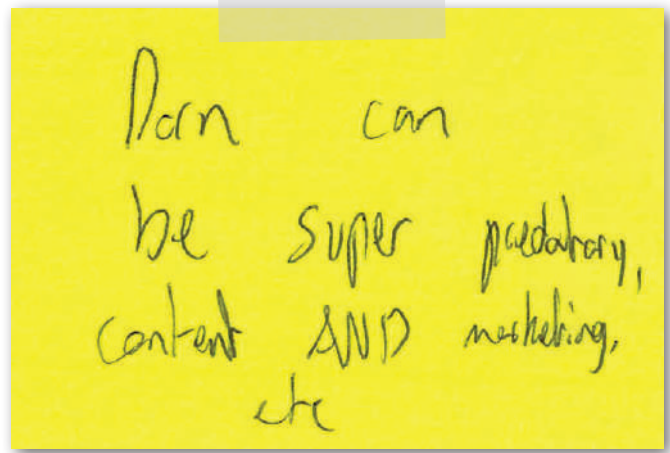 Porn can
be super predatory,
content AND marketing,
etc